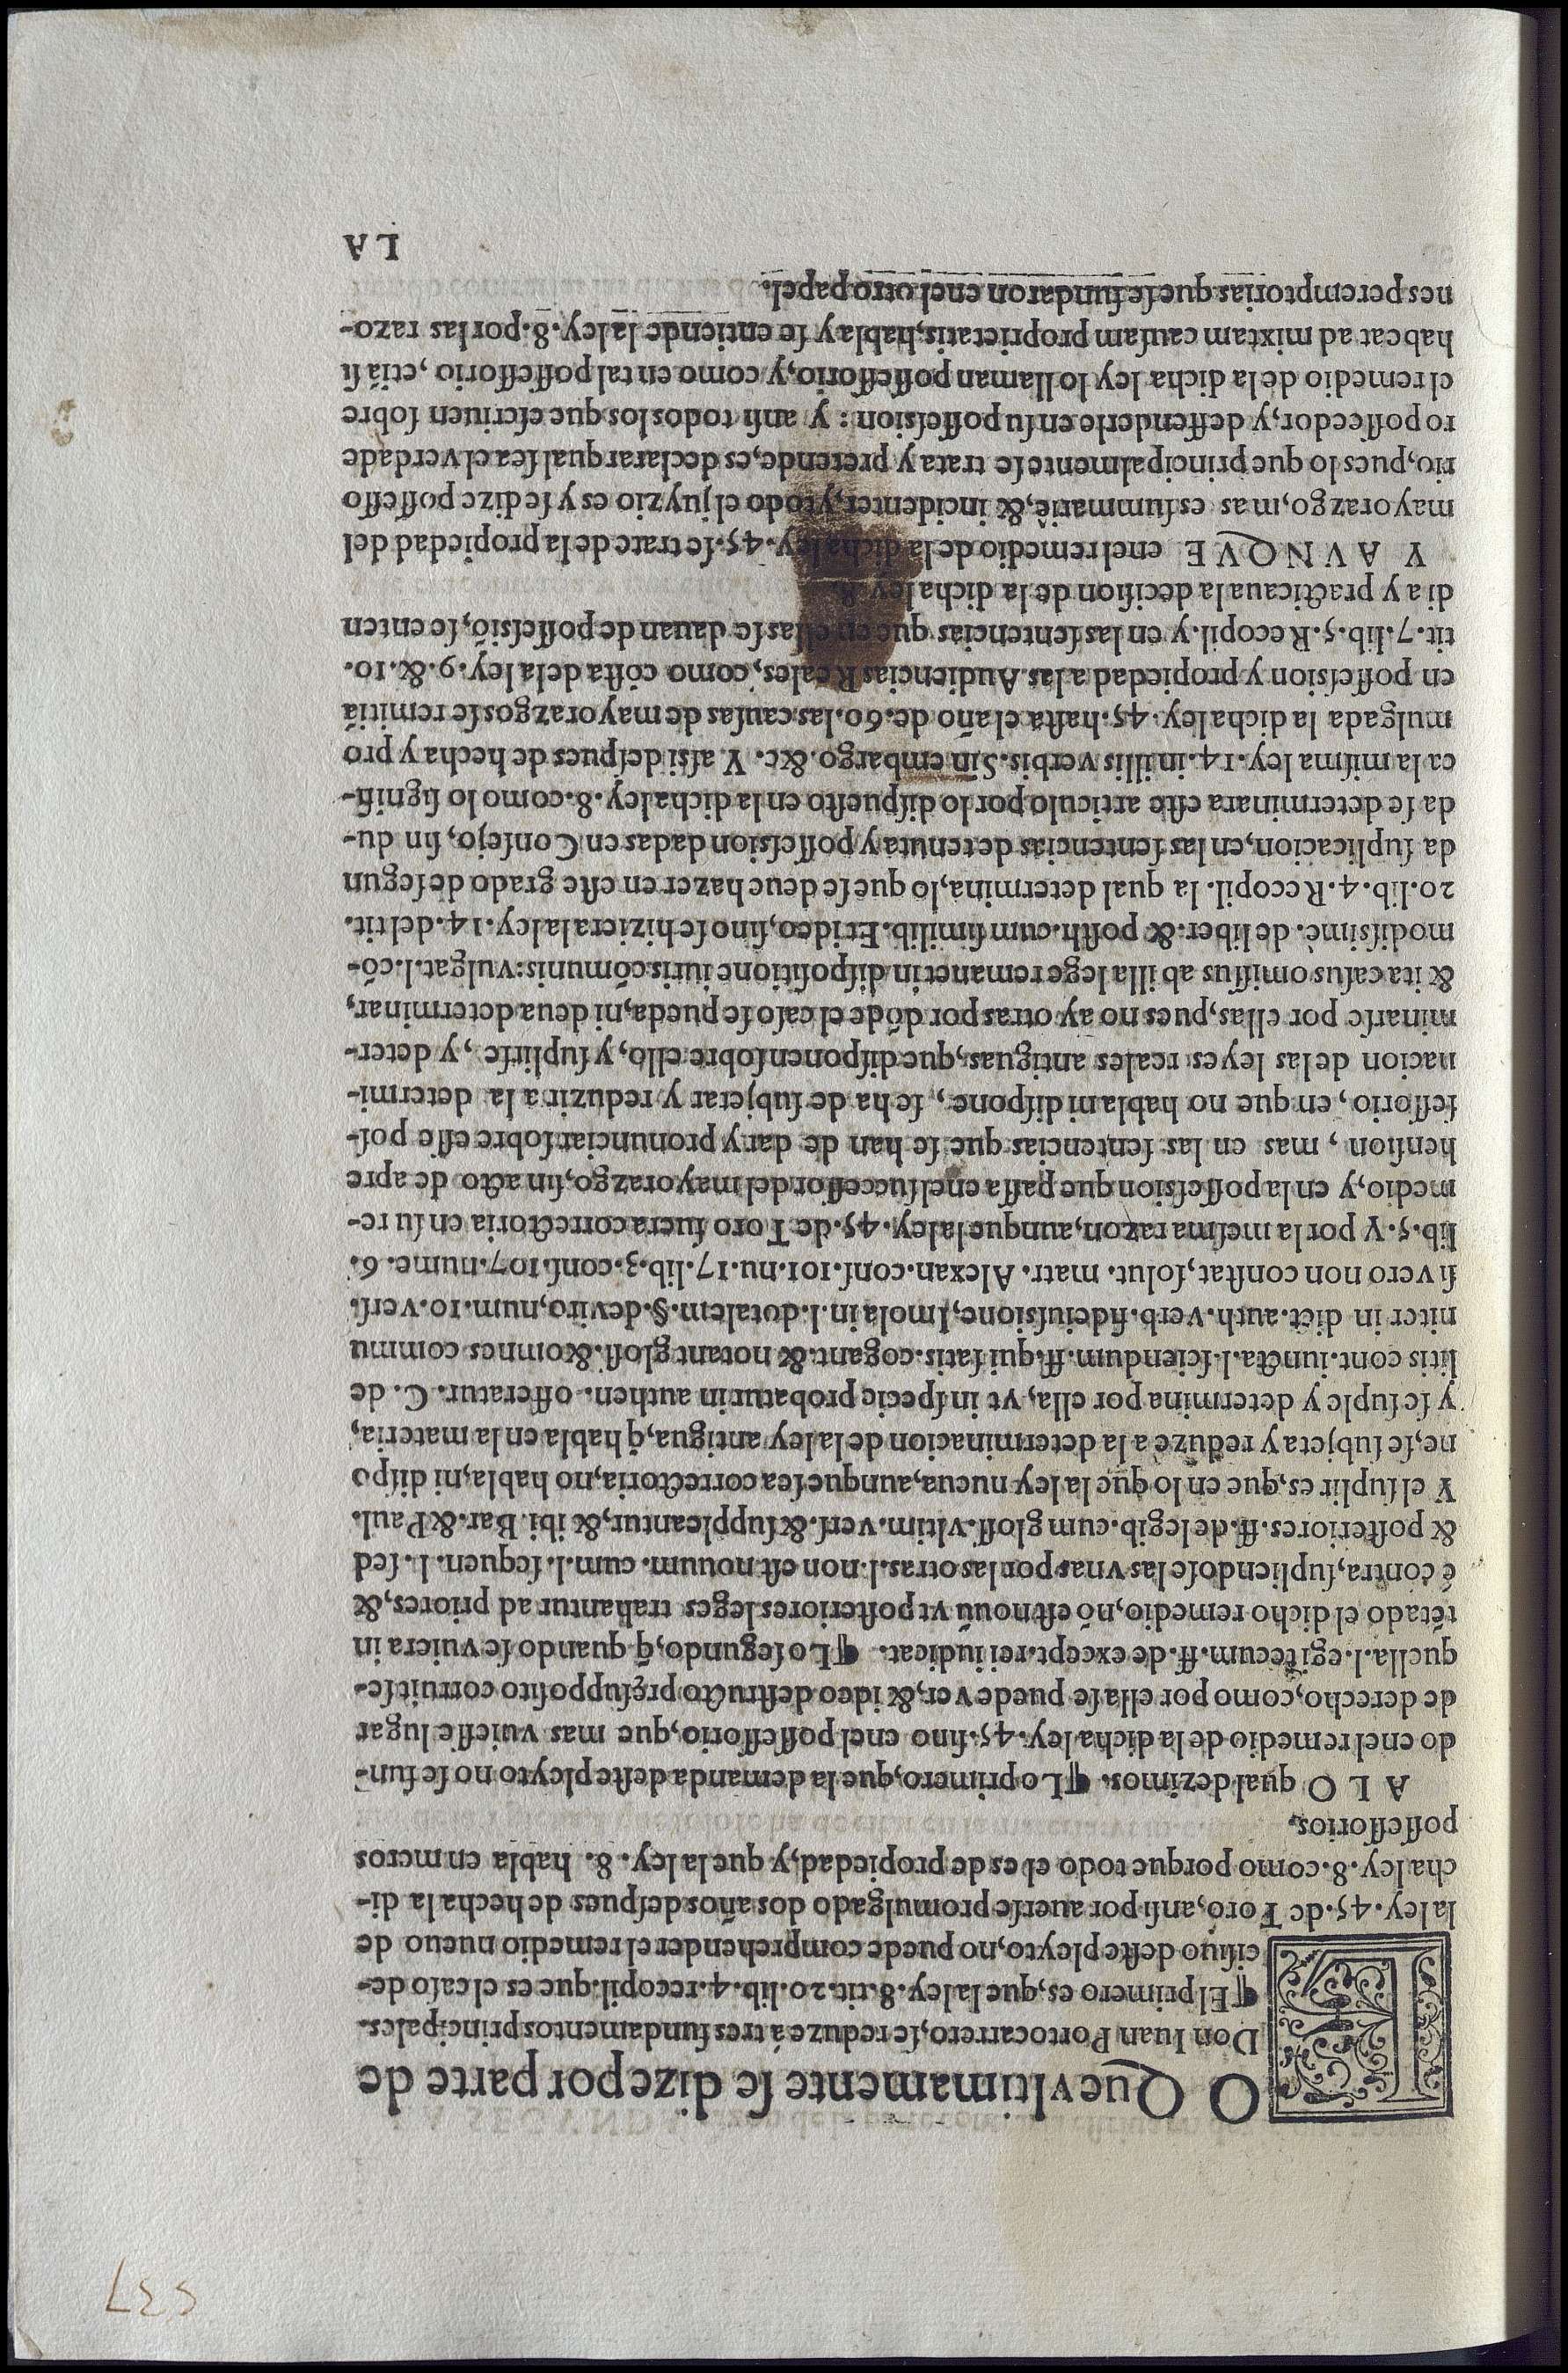 537
LO Que vltimamente ſe dize por parte de
Don Iuan Portocarrero, ſe reduze á tres fundamentos principales.
¶ El primero es, que la ley. 8. tit. 20. lib. 4. recopil. que es el caſo de-
ciſiuo deſte pleyto, no puede comprehender el remedio nueuo de
la ley. 45. de Toro, anſi por auerſe promulgado dos años deſpues de hecha la di-
cha ley. 8. como porque todo el es de propiedad, y que la ley. 8. habla en meros
poſſeſſorios.
A L O qual dezimos. ¶ Lo primero, que la demanda deſte pleyto no ſe fun-
do en el remedio de la dicha ley. 45. ſino en el poſſeſſorio, que mas vuieſſe lugar
de derecho, como por ella ſe puede ver, & ideo deſtructo pręſuppoſito corruit ſe-
quella. l. egitecum. ff. de except. rei iudicat. ¶ Lo ſegundo, q̃ quando ſe vuiera in
tētado el dicho remedio, nō eſt nouū vt poſteriores leges trahantur ad priores, &
é contra, ſupliendoſe las vnas por las otras. l. non eſt nouum. cum. l. ſequen. l. ſed
& poſteriores. ff. de legib. cum gloſſ. vltim. verſ. & ſuppleantur, & ibi. Bar. & Paul.
Y el ſuplir es, que en lo que la ley nueua, aunque ſea correctoria, no habla, ni diſpo
ne, ſe ſubjeta y reduze a la determinacion de la ley antigua, q̃ habla en la materia,
y ſe ſuple y determina por ella, vt in ſpecie probatur in authen. offeratur. C. de
litis cont. iuncta. l. ſciendum. ff. qui ſatis. cogant. & notant gloſſ. & omnes commu
niter in dict. auth. verb. fideiuſsione, Imola in. l. dotalem. §. de viro, num. 10. verſ.
ſi vero non conſtat, ſolut. matr. Alexan. conſ. 101. nu. 17. lib. 3. conſ. 107. nume. 6.
lib. 5. Y por la meſma razon, aunque la ley. 45. de Toro fuera correctoria en ſu re-
medio, y en la poſſeſsion que paſſa en el ſucceſſor del mayorazgo, ſin acto de apre
henſion, mas en las ſentencias que ſe han de dar y pronunciar ſobre eſſe poſ-
ſeſſorio, en que no habla ni diſpone, ſe ha de ſubjetar y reduzir a la determi-
nacion de las leyes reales antiguas, que diſponen ſobre ello, y ſuplirſe, y deter-
minarſe por ellas, pues no ay otras por dōde el caſo ſe pueda, ni deua determinar,
& ita caſus omiſſus ab illa lege remanet in diſpoſitione iuris cōmunis: vulgat. l. cō-
modiſsimè. de liber. & poſth. cum ſimilib. Et ideo, ſino ſe hiziera la ley. 14. del tit.
20. lib. 4. Recopil. la qual determina, lo que ſe deue hazer en eſte grado de ſegun
da ſuplicacion, en las ſentencias de tenuta y poſſeſsion dadas en Conſejo, ſin du-
da ſe determinara eſte articulo por lo diſpueſto en la dicha ley. 8. como lo ſignifi-
ca la miſma ley. 14. in illis verbis. Sin embargo. &c. Y aſsi deſpues de hecha y pro
mulgada la dicha ley. 45. haſta el año de. 60. las cauſas de mayorazgos ſe remitiā
en poſſeſsion y propiedad a las Audiencias Reales, como cōſta de la ley. 9. & 10.
tit. 7. lib. 5. Recopil. y en las ſentencias que en ellas ſe dauan de poſſeſsiō, ſe enten
dia y practicaua la deciſion de la dicha ley 8.
Y A V N Q V E en el remedio de la dicha ley. 45. ſe trate de la propiedad del
mayorazgo, mas es ſummariè, & incidenter, y todo el juyzio es y ſe dize poſſeſſo
rio, pues lo que principalmente ſe trata y pretende, es declarar qual ſea el verdade
ro poſſeedor, y deffenderle en ſu poſſeſsion: y anſi todos los que eſcriuen ſobre
el remedio de la dicha ley lo llaman poſſeſſorio, y como en tal poſſeſſorio, etiá ſi
habeat ad mixtam cauſam proprietatis, habla y ſe entiende la ley. 8. por las razo-
nes peremptorias que ſe fundaron en el otro papel.
LA